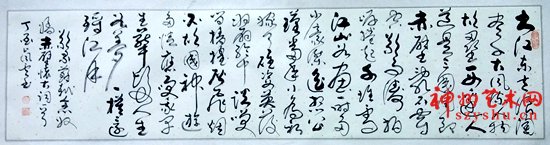 大江东去浪淘
尽千古风流人
物故垒西边人
道是三国周郎
赤壁乱石穿
空惊涛拍
岸卷起千堆雪
江山如画一时多
少豪杰遥想公
瑾当年小乔初
嫁了雄姿英发
羽扇纶巾谈笑
间樯橹灰飞烟
灭故国神游
多情应笑我早
生华发人生
如梦一樽还
酹江月
苏轼念奴
娇赤壁怀古词
丁亥
神州艺术网
szyshu.cn